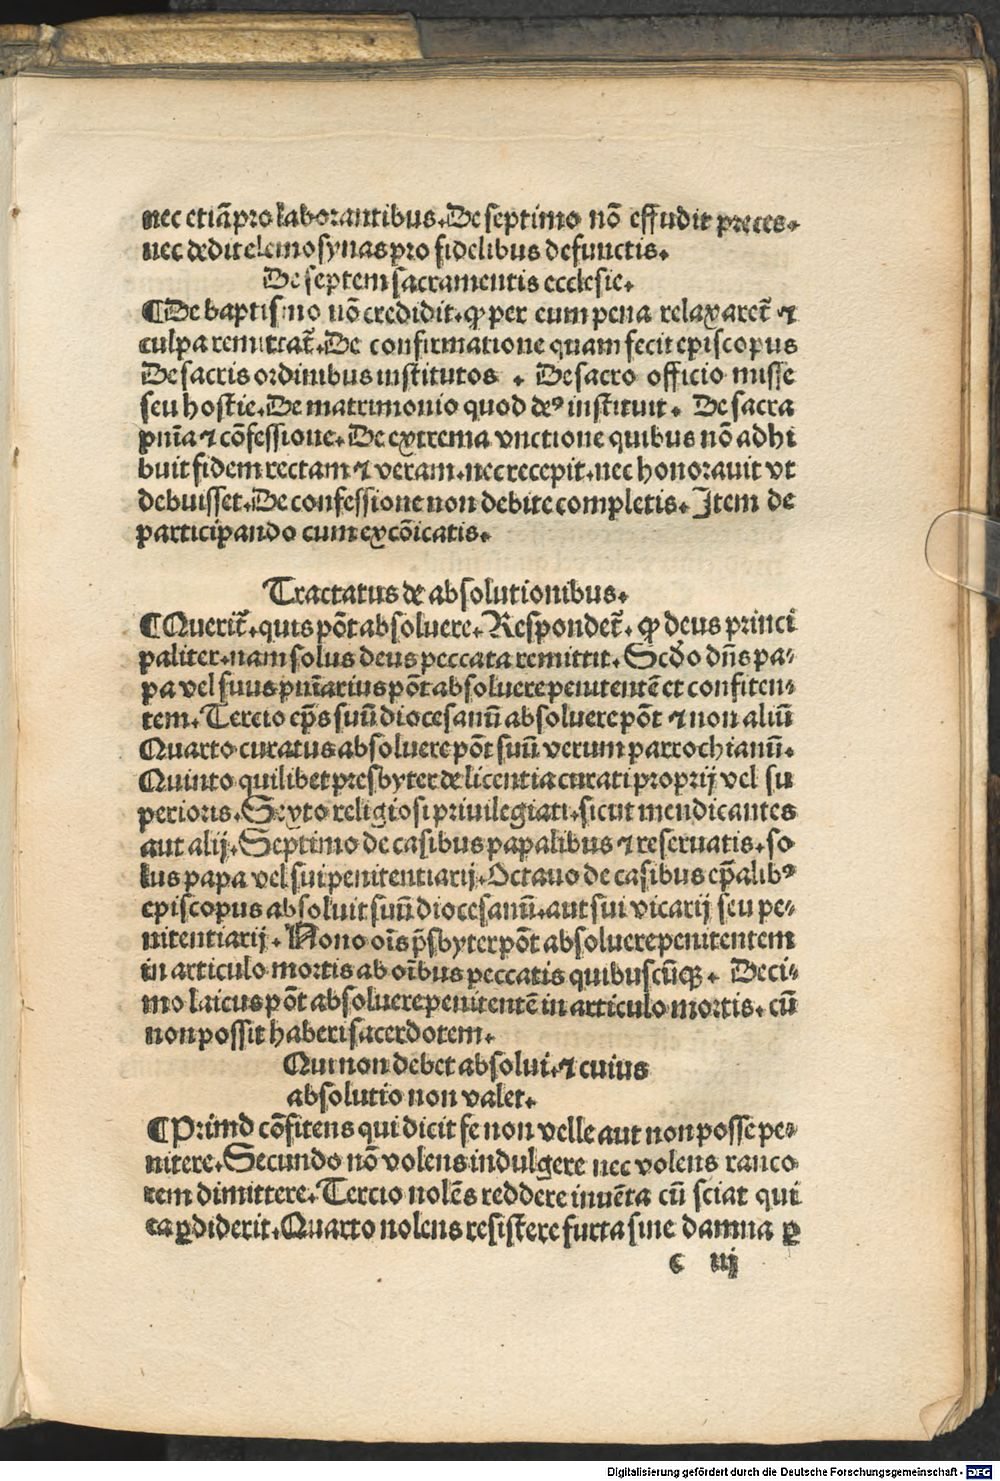 nec etiā pro laborantibus. De septimo nō effudit preces.
nec dedit elemosynas pro fidelibus defunctis.
De septem sacramentis ecclesie.
¶De baptismo nō credidit. ꝙ per eum pena relaxaret̄ ⁊
culpa remittat̄. De confirmatione quam fecit episcopus
De sacris ordinibus institutos . De sacro officio misse
seu hostie. De matrimonio quod deꝰ instituit. De sacra
pnīa ⁊ cōfessione. De extrema vnctione quibus nō adhi
buit fidem rectam ⁊ veram. nec recepit. nec honorauit vt
debuisset. De confessione non debite completis. Item de
participando cum excōicatis.
Tractatus de absolutionibus.
¶Querit̄. quis pōt absoluere. Respondet̄. ꝙ deus princi
paliter. nam solus deus peccata remittit. Scd̄o dn̄s pa-
pa vel suus pnīarius pōt absoluere penitentē et confiten-
tem. Tercio ep̄s suū diocesanū absoluere pōt ⁊ non aliū
Quarto curatus absoluere pōt suū verum parrochianū.
Quinto quilibet presbyter de licentia curati proprij vel su
perioris. Sexto religiosi priuilegiati. sicut mendicantes
aut alij. Septimo de casibus papalibus ⁊ reseruatis. so
lus papa vel sui penitentiarij. Octauo de casibus ep̄alibꝰ
episcopus absoluit suū diocesanū. aut sui vicarij seu pe-
nitentiarij. Nono oīs p̄sbyter pōt absoluere penitentem
in articulo mortis ab oībus peccatis quibuscūqꝫ. Deci-
mo laicus pōt absoluere penitentē in articulo mortis. cū
non possit haberi sacerdotem.
Qui non debet absolui. ⁊ cuius
absolutio non valet.
¶Primo cōfitens qui dicit se non velle aut non posse pe-
nitere. Secundo nō volens indulgere nec volens ranco
rem dimittere. Tercio nolēs reddere inuēta cū sciat qui
ea ꝑdiderit. Quarto nolens resistere furta siue damna ꝑ
c iij
Digitalisierung gefördert durch die Deutsche Forschungsgemeinschaft - DFG